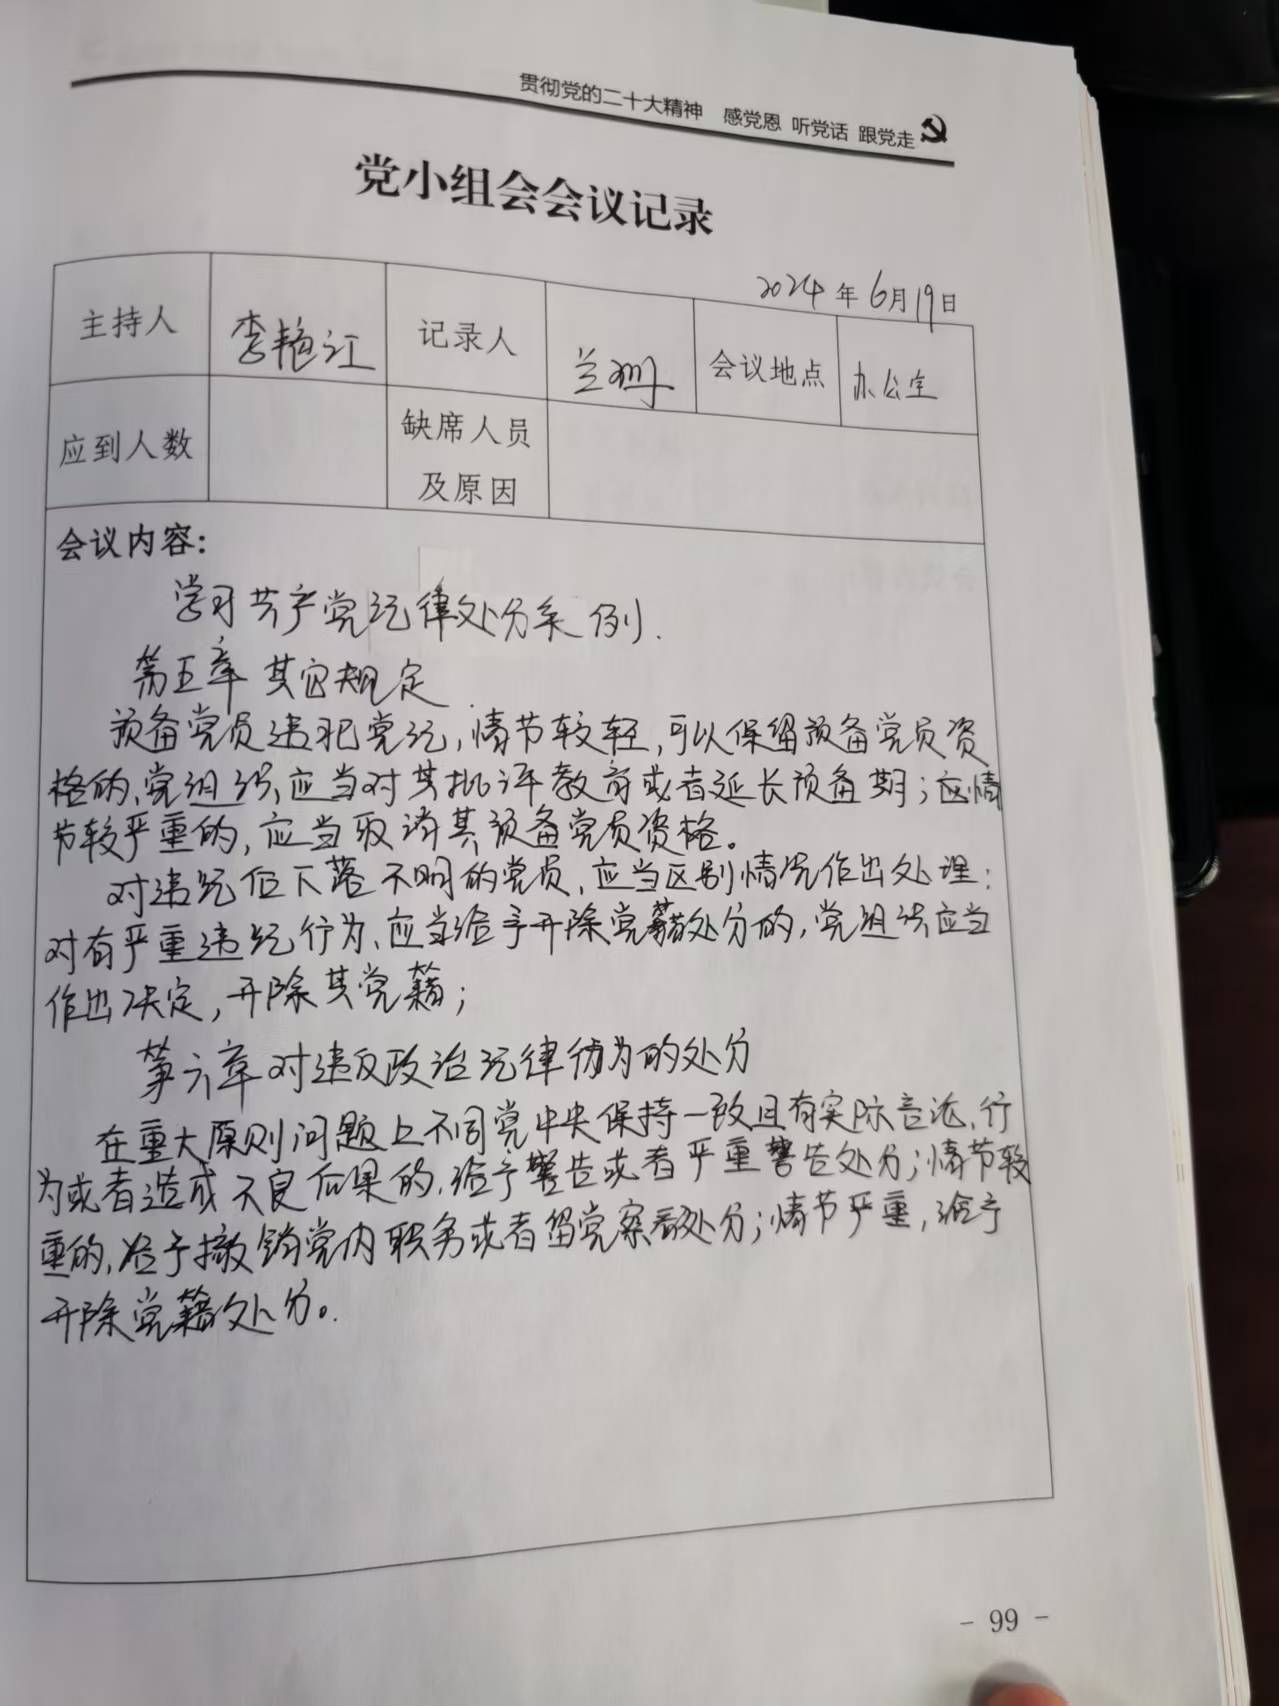 贯彻党的二十大精神 感党恩 听党话 跟党走
党小组会会议记录
2024年6月19日
主持人 李艳江 记录人 兰 会议地点 办公室
应到人数 缺席人员及原因
会议内容：
学习共产党纪律处分条例.
第五章 其它规定
预备党员违犯党纪,情节较轻,可以保留预备党员资
格的,党组织应当对其批评教育或者延长预备期；情
节较严重的,应当取消其预备党员资格。
对违纪但下落不明的党员,应当区别情况作出处理：
对有严重违纪行为、应当给予开除党籍处分的,党组织应当
作出决定,开除其党籍；
第六章 对违反政治纪律行为的处分
在重大原则问题上不同党中央保持一致且有实际言论、行
为或者造成不良后果的,给予警告或者严重警告处分；情节较
重的,给予撤销党内职务或者留党察看处分；情节严重,给予
开除党籍处分。
- 99 -